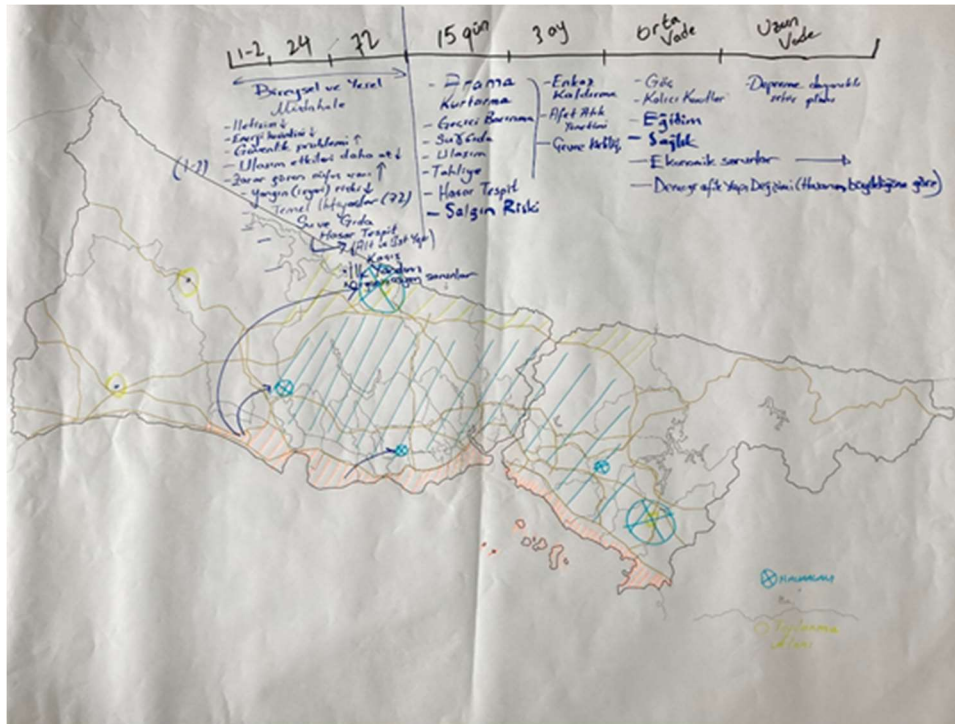 1-2 24 72 15 gün 3 ay Orta Vade Uzun Vade
Bireysel ve Yerel
Müdahale
- İletişim ↓
- Enerji kesintisi ↓
- Güvenlik problemi ↑
- Ulaşım etkileri daha az ↓
(1-2)
- Zarar gören nüfus ↑
- Yangın riski ↓
- Temel İhtiyaçlar (72)
Su ve Gıda
- Hasar Tespit
(Alt ve Üst Yapı)
- İlk Yardım
sorunlar
- Arama
Kurtarma
- Geçici Barınma
- Su, Gıda
- Ulaşım
- Tahliye
- Hasar Tespit
- Salgın Riski
- Enkaz
Kaldırma
- Afet Atık
Yönetimi
- Çevre
- Göç
- Kalıcı Konutlar
- Eğitim
- Sağlık
- Ekonomik sorunlar
- Demografik Yapı Değişimi (Hasarın büyüklüğüne göre)
- Depreme dayanıklı
şehir planı
HAVAALANI
Toplanma
Alanı